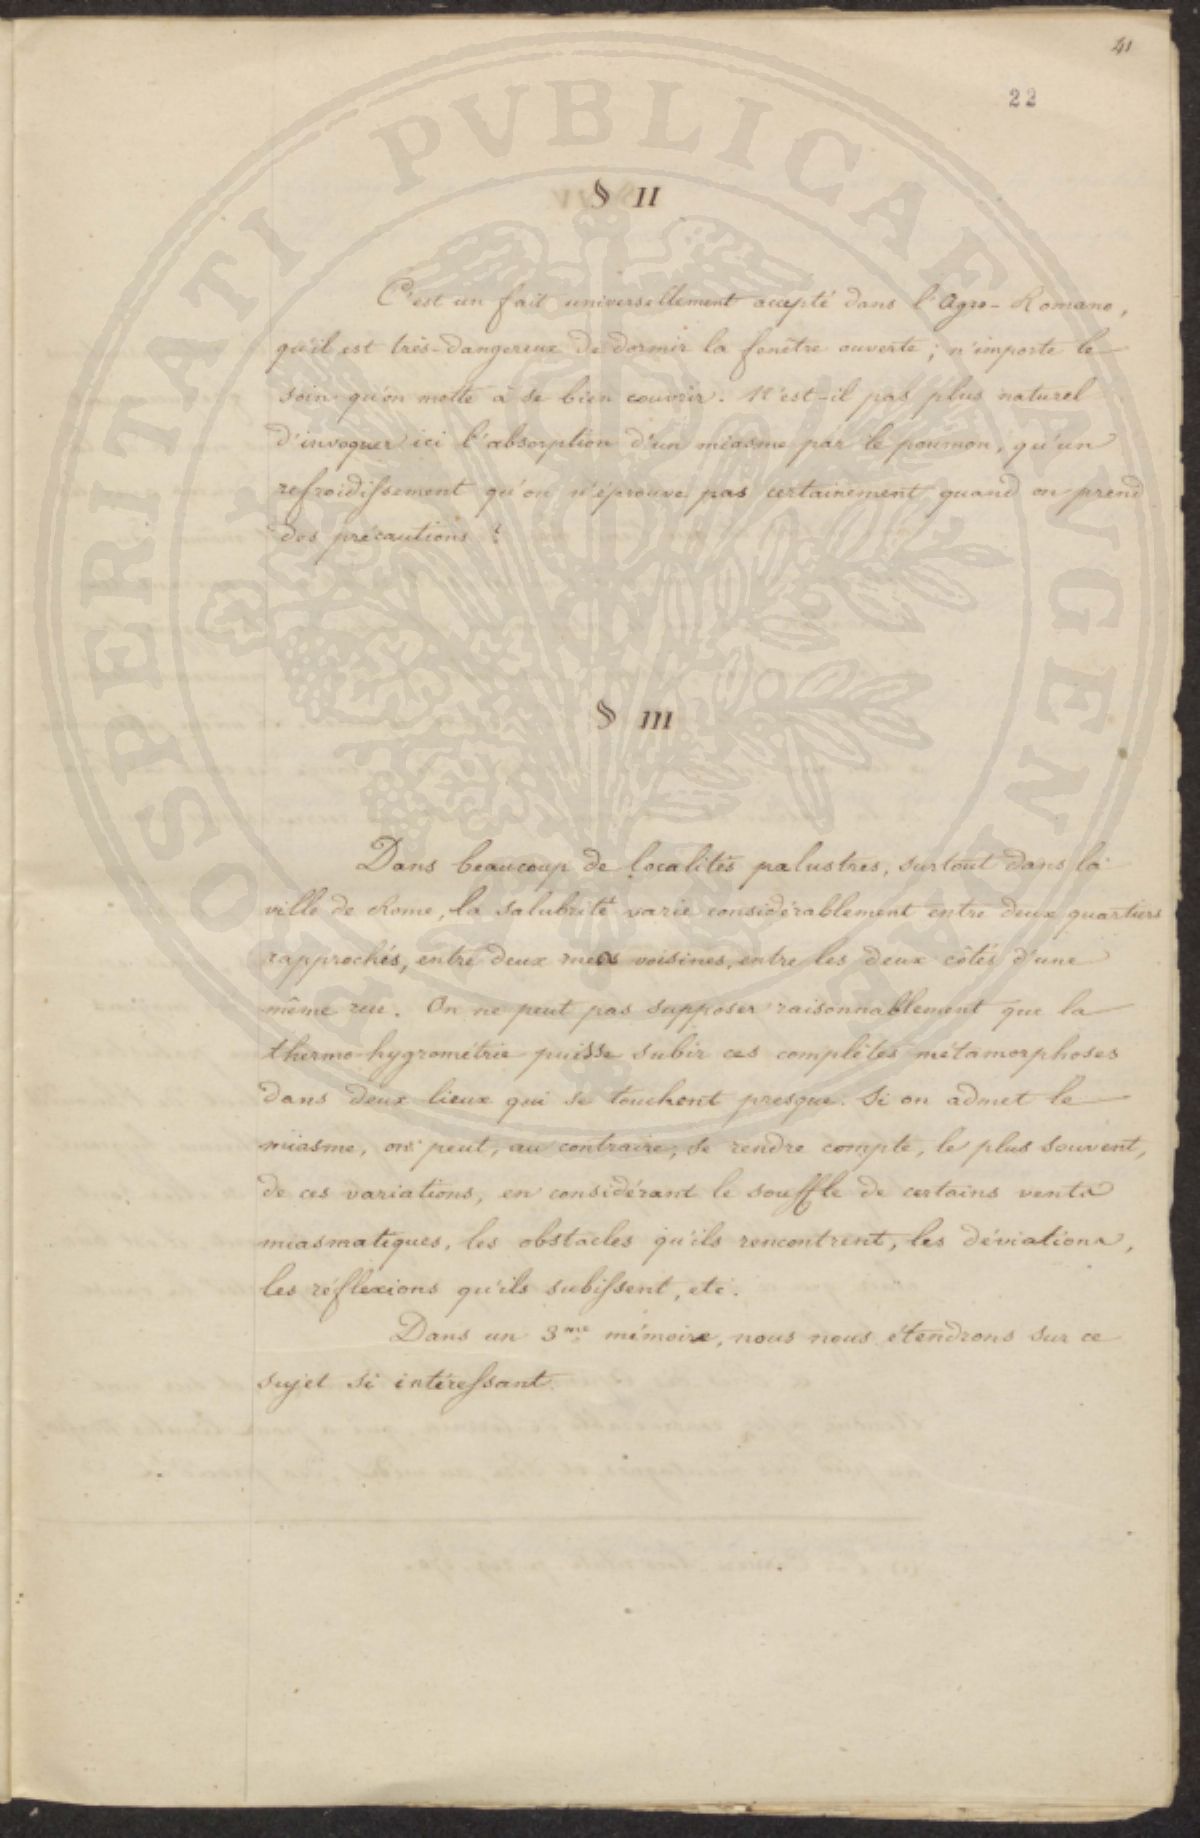 41
22
§ II
C'est un fait universellement accepté dans l'Agro-Romano,
qu'il est très-dangereux de dormir la fenêtre ouverte ; n'importe le
soin qu'on mette à se bien couvrir. N'est-il pas plus naturel
d'invoquer ici l'absorption d'un miasme par le poumon, qu'un
refroidissement qu'on n'éprouve pas certainement quand on prend
des précautions ?
§ III
Dans beaucoup de localités palustres, surtout dans la
ville de Rome, la salubrité varie considérablement entre deux quartiers
rapprochés, entre deux rues voisines, entre les deux côtés d'une
même rue. On ne peut pas supposer raisonnablement que la
thermo-hygrométrie puisse subir ces complètes métamorphoses
dans deux lieux qui se touchent presque. Si on admet le
miasme, on peut, au contraire, se rendre compte, le plus souvent,
de ces variations, en considérant le souffle de certains vents
miasmatiques, les obstacles qu'ils rencontrent, les déviations,
les réflexions qu'ils subissent, etc.
Dans un 3me mémoire, nous nous étendrons sur ce
sujet si intéressant
PROSPERITATI PVBLICAE AVGENDAE